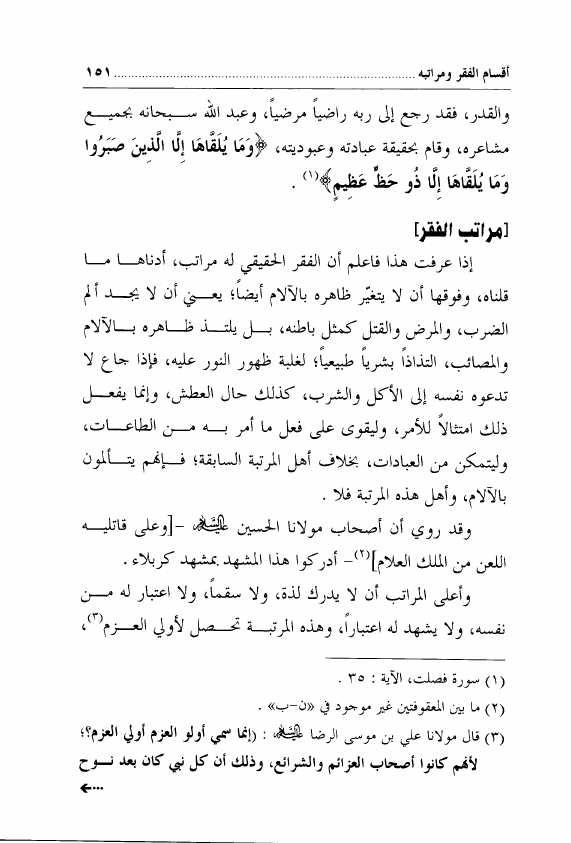 أقسام الفقر ومراتبه ........................................................................ ١٥١
والقدر، فقد رجع إلى ربه راضياً مرضياً، وعبد الله سبحانه بجميع
مشاعره، وقام بحقيقة عبادته وعبوديته، ﴿وَمَا يُلَقَّاهَا إِلَّا الَّذِينَ صَبَرُوا
وَمَا يُلَقَّاهَا إِلَّا ذُو حَظٍّ عَظِيمٍ﴾(١) .
[مراتب الفقر]
إذا عرفت هذا فاعلم أن الفقر الحقيقي له مراتب، أدناها ما
قلناه، وفوقها أن لا يتغيّر ظاهره بالآلام أيضاً؛ يعني أن لا يجد ألم
الضرب، والمرض والقتل كمثل باطنه، بل يلتذ ظاهره بالآلام
والمصائب، التذاذاً بشرياً طبيعياً؛ لغلبة ظهور النور عليه، فإذا جاع لا
تدعوه نفسه إلى الأكل والشرب، كذلك حال العطش، وإنما يفعل
ذلك امتثالاً للأمر، وليقوى على فعل ما أمر به من الطاعات،
وليتمكن من العبادات، بخلاف أهل المرتبة السابقة؛ فإنهم يتألمون
بالآلام، وأهل هذه المرتبة فلا .
وقد روي أن أصحاب مولانا الحسين عليه السلام -[وعلى قاتليه
اللعن من الملك العلام](٢)- أدركوا هذا المشهد بمشهد كربلاء .
وأعلى المراتب أن لا يدرك لذة، ولا سقماً، ولا اعتبار له من
نفسه، ولا يشهد له اعتباراً، وهذه المرتبة تحصل لأولي العزم(٣)،
(١) سورة فصلت، الآية : ٣٥ .
(٢) ما بين المعقوفتين غير موجود في «ن-ب» .
(٣) قال مولانا علي بن موسى الرضا عليه السلام : (إنما سمي أولو العزم أولي العزم؟؛
لأنهم كانوا أصحاب العزائم والشرائع، وذلك أن كل نبي كان بعد نوح
...←